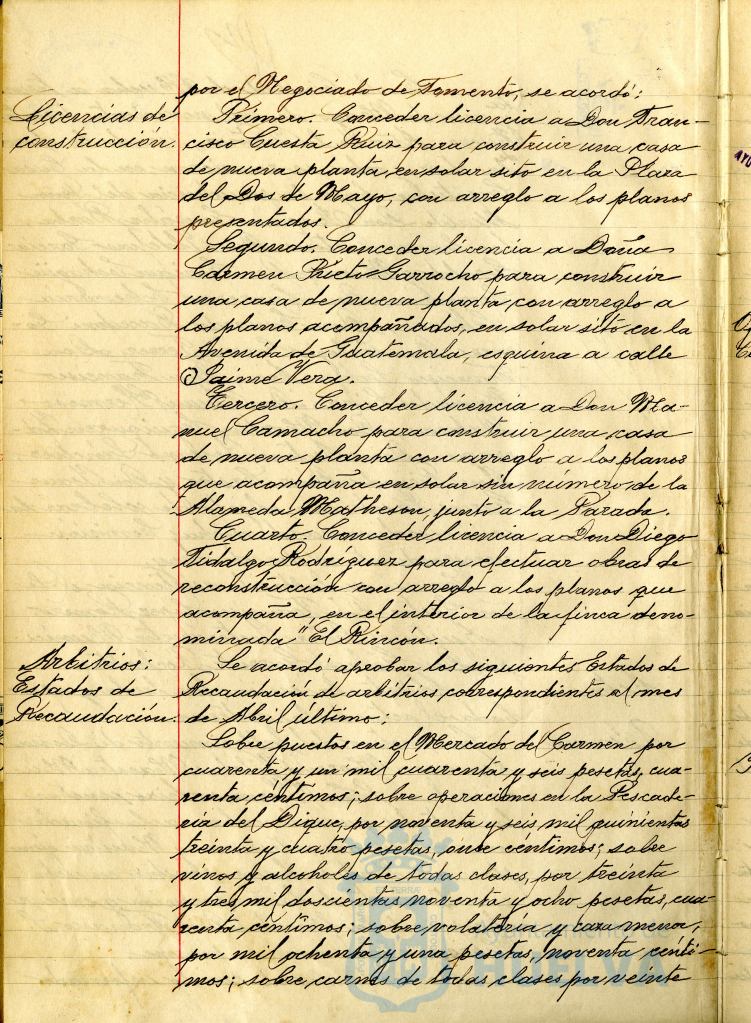 por el Negociado de Fomento, se acordó:
Licencias de
construcción.
Primero. Conceder licencia a Don Fran-
cisco Cuesta Ruiz para construir una casa
de nueva planta, en solar sito en la Plaza
del Dos de Mayo, con arreglo a los planos
presentados.
Segundo. Conceder licencia a Doña
Carmen Prieto Garrocho para construir
una casa de nueva planta con arreglo a
los planos acompañados, en solar sito en la
Avenida de Guatemala, esquina a calle
Jaime Vera.
Tercero. Conceder licencia a Don Ma-
nuel Camacho para construir una casa
de nueva planta con arreglo a los planos
que acompaña en solar sin número de la
Alameda Matheson, junto a la Parada.
Cuarto. Conceder licencia a Don Diego
Hidalgo Rodríguez para efectuar obras de
reconstrucción con arreglo a los planos que
acompaña, en el interior de la finca deno-
minada "El Rincón.
Arbitrios:
Estados de
Recaudación.
Se acordó aprobar los siguientes Estados de
Recaudación de arbitrios correspondientes al mes
de Abril último:
Sobre puestos en el Mercado del Carmen por
cuarenta y un mil cuarenta y seis pesetas, cua-
renta céntimos; sobre operaciones en la Pescade-
ria del Dique, por noventa y seis mil quinientas
treinta y cuatro pesetas, once céntimos; sobre
vinos y alcoholes de todas clases, por treinta
y tres mil doscientas noventa y ocho pesetas, cua-
renta céntimos; sobre volatería y caza menor,
por mil ochenta y una pesetas, noventa cénti-
mos; sobre carnes de todas clases por veinte